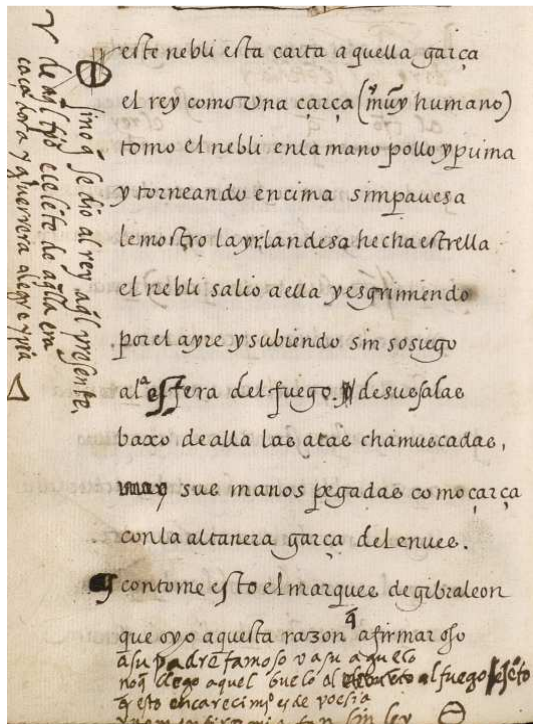 este nebli esta carta aquella garça
el rey como una çarça (muy humano)
tomo el nebli enla mano pollo y prima
y torneando encima sin pavesa
le mostro la yrlandesa hecha estrella
el nebli salio a ella y esgrimiendo
por el ayre y subiendo sin sosiego
al.ª esfera del fuego. desus alas
baxo de alla las atas chamuscadas,
sus manos pegadas como çarça
con la altanera garça del enves.
contome esto el marques de gibraleon
que oyo aquesta razon q̃ afirmar oso
a su padre famoso v a su aguelo
noq̃ llego aquel buelo al al fuego
q̃ esto encarecimº es de poesia
sino q̃ se dio al rey aql̃ presente,
de aql̃ era
caçadora y guerrera alegre y pia